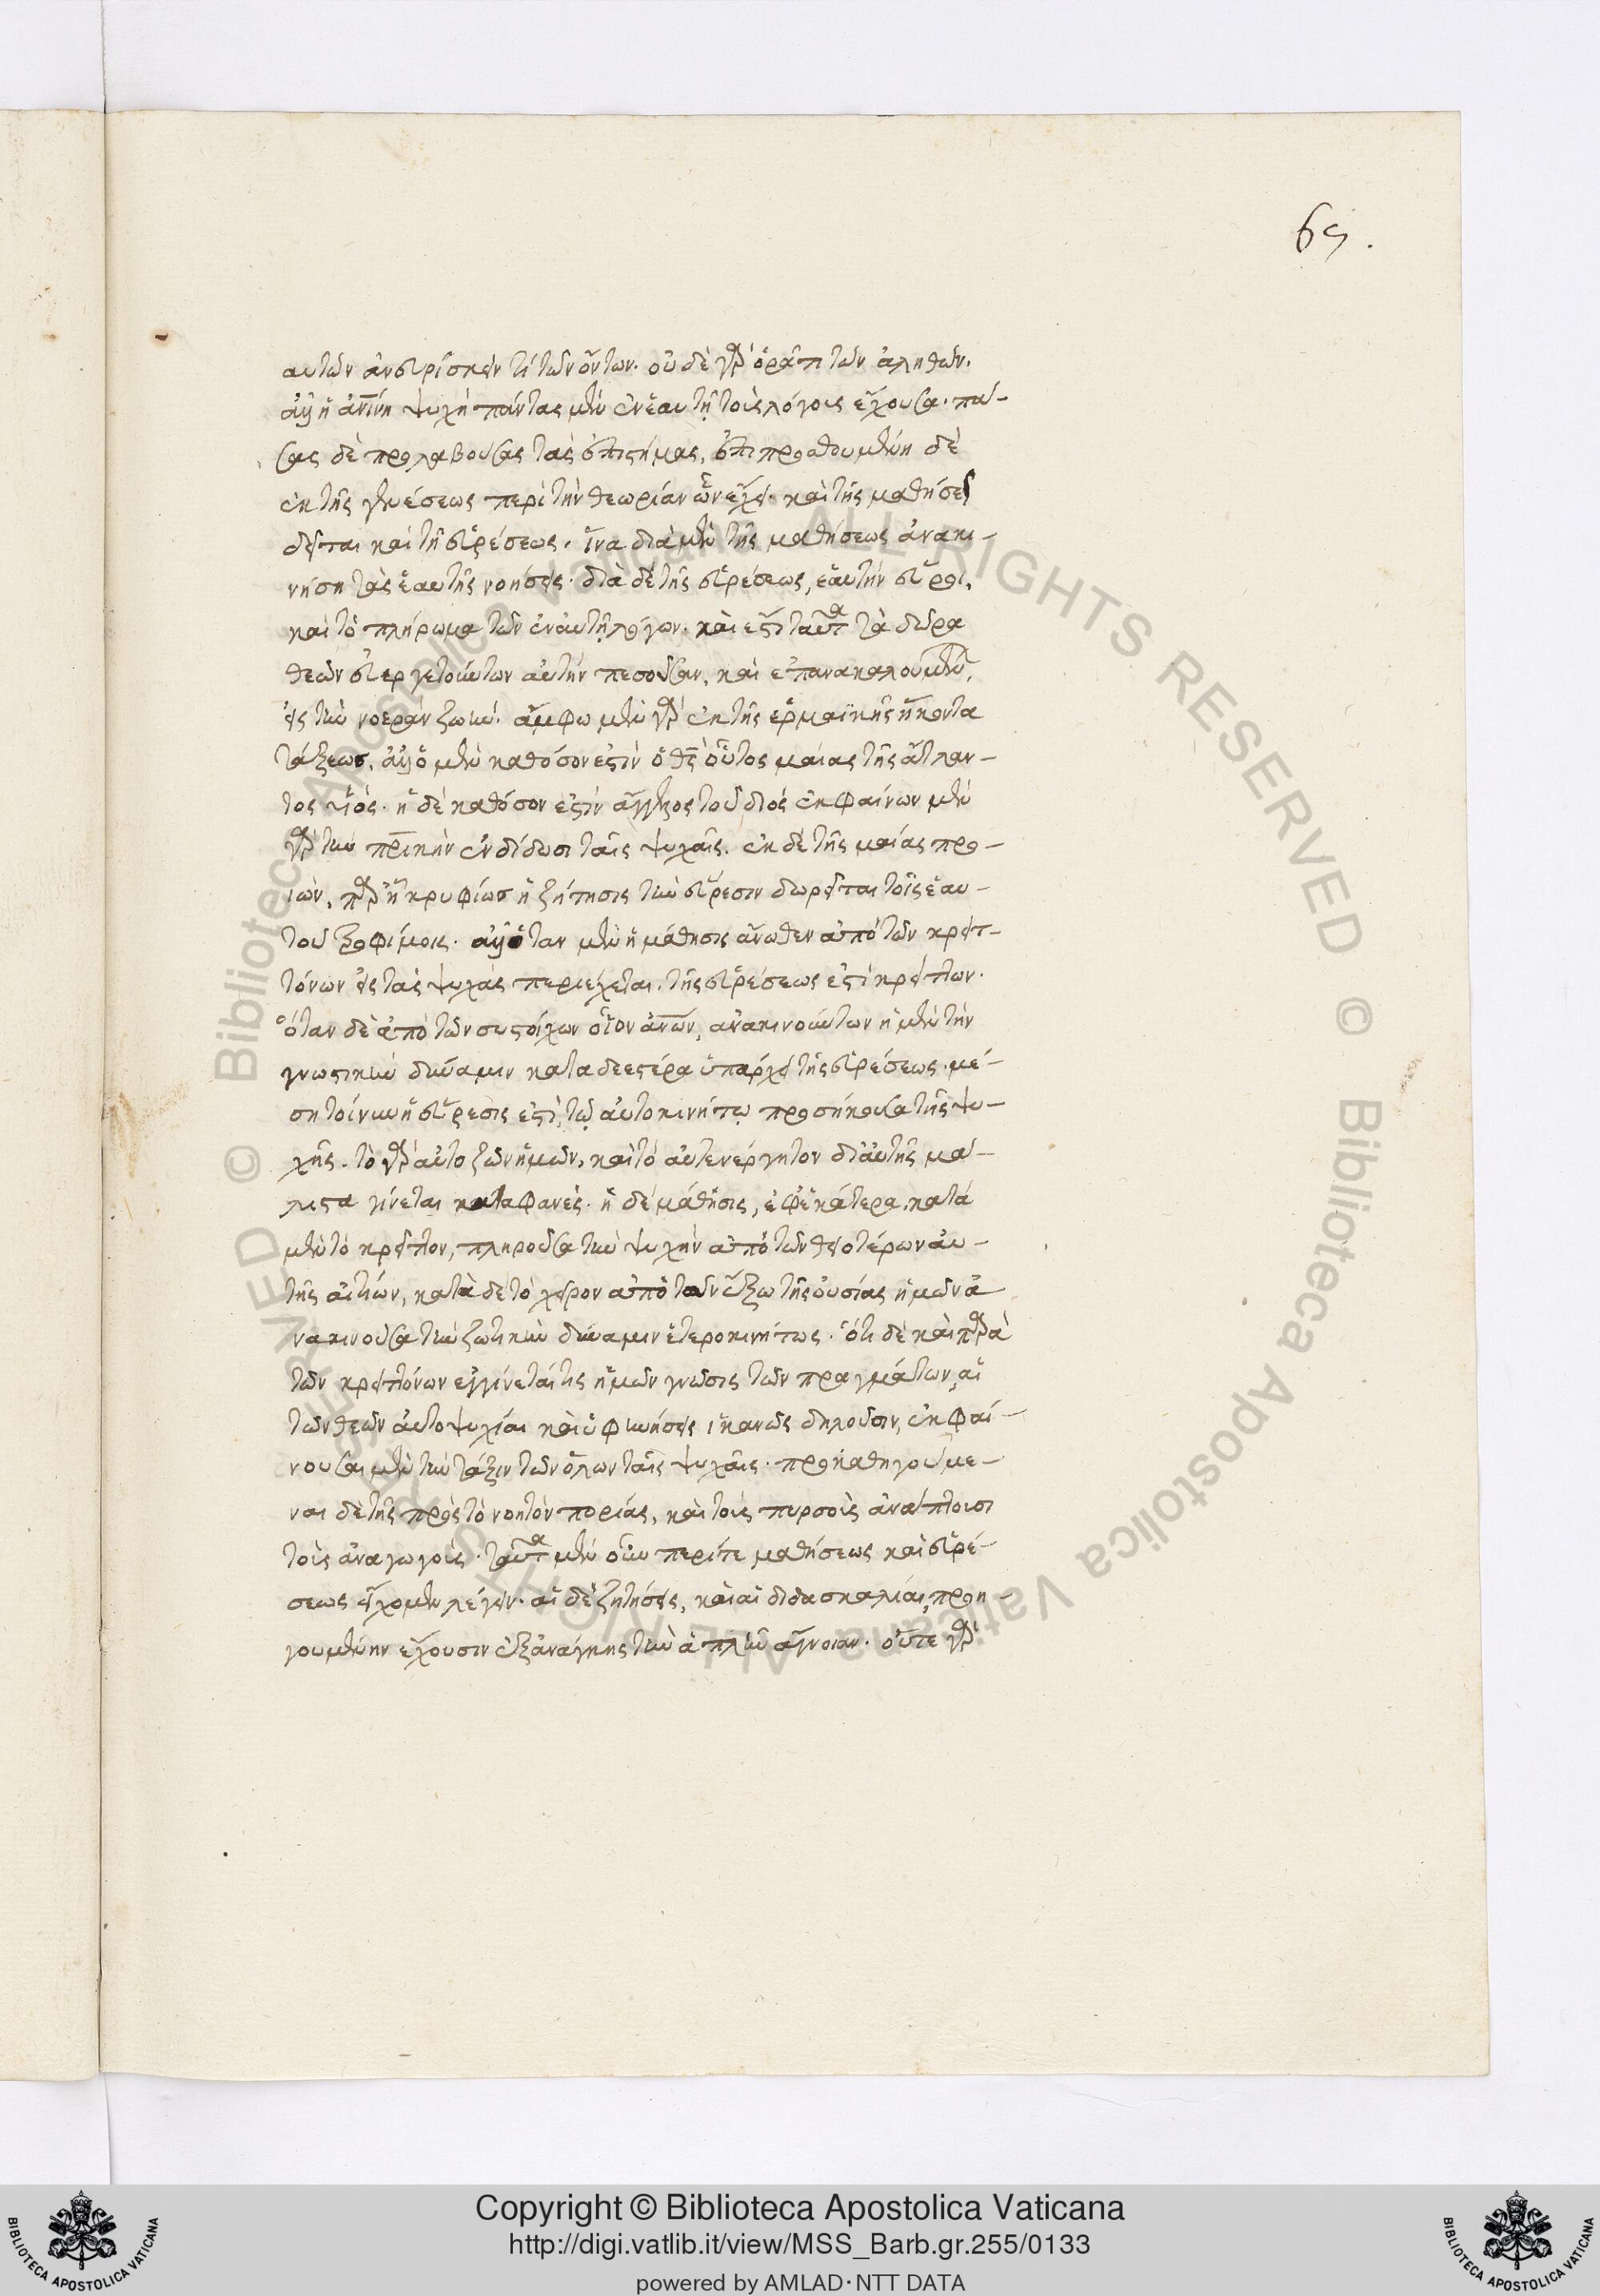 65.
αυτῶν ἀνευρίσκειν τί τῶν ὄντων. οὐ δὲ γὰρ ὁρᾶ τι τῶν ἀληθῶν.
ἀλλ' ἡ ἀνίνη ψυχὴ πάντας μὲν ἐν ἑαυτῇ τοὺς λόγους ἔχουσα. πά-
σας δὲ προλαβοῦσας τὰς ἐπιστήμας, ἐπιπροσθουμένη δὲ
ἐκ τῆς γενέσεως περὶ τὴν θεωρίαν ὧν ἔχει. καὶ τῆς μαθήσεως
δεῖται καὶ τῆς εὑρέσεως. ἵνα διὰ μὲν τῆς μαθήσεως ἀνακι-
νήση τὰς ἑαυτῆς νοήσεις. διὰ δὲ τῆς εὑρέσεως, ἑαυτὴν εὕροι,
καὶ τὸ πλήρωμα τῶν ἐν αὐτῇ λόγων. καὶ ἔστι ταῦτα τὰ δῶρα
θεῶν εὐεργετούντων αὐτὴν πεσοῦσαν, καὶ ἐπανακαλουμένων,
εἰς τὴν νοερὰν ζωήν. ἄμφω μὲν γὰρ ἐκ τῆς ἑρμαϊκῆς ἥκοντα
τάξεως. ἀλλ' ὁ μὲν καθόσον ἐστὶν ὁ θς οὗτος μαίας τῆς ἄτλαν-
τος υἱός. ἡ δὲ καθόσον ἐστὶν ἄγγελος τοῦ διός ἐκφαίνων μὲν
γὰρ τὴν πρικὴν ἐνδίδωσι ταῖς ψυχαῖς. ἐκ δὲ τῆς μαίας προ-
ιών, παρ' ᾗ κρυφίως ἡ ζήτησις τὴν εὕρεσιν δωρεῖται τοῖς ἑαυ-
τοῦ τροφίμοις. ἀλλ' ὅταν μὲν ἡ μάθησις ἄνωθεν ἀπὸ τῶν κρειτ-
τόνων εἰς τὰς ψυχὰς περιέχεται. τῆς εὑρέσεως ἐστὶ κρείττων.
ὅταν δὲ ἀπὸ τῶν συστοίχων οἷον ἀνων, ἀνακινούντων ἡμῶν τὴν
γνωστικὴν δύναμιν καταδεεστέρα ὑπάρχει τῆς εὑρέσεως. μέ-
ση τοίνυν ἡ εὕρεσις ἐστὶ, τῷ αὐτοκινήτῳ προσήκουσα τῆς ψυ-
χῆς. τὸ γὰρ αὐτοζῶν ἡμῶν, καὶ τὸ αὐτενέργητον δι' αὐτῆς μά-
λιστα γίνεται καταφανές. ἡ δὲ μάθησις, ἐφ' ἑκάτερα, κατὰ
μὲν τὸ κρεῖττον, πληροῦσα τὴν ψυχὴν ἀπὸ τῶν θειοτέρων αὐ-
τῆς αἰτιῶν, κατὰ δὲ τὸ χεῖρον ἀπὸ τῶν ἔξω τῆς οὐσίας ἡμῶν ἀ
νακινοῦσα τὴν ζωτικὴν δύναμιν ἑτεροκινήτως. ὅτι δὲ καὶ παρὰ
τῶν κρειττόνων ἐγγίνεταί τις ἡμῶν γνῶσις τῶν πραγμάτων, αἱ
τῶν θεῶν αὐτοψυχίαι καὶ ὑφηγήσεις ἱκανῶς δηλοῦσιν, ἐκφαί-
νουσαι μὲν τὴν τάξιν τῶν ὅλων ταῖς ψυχαῖς. προκαθηγούμε-
ναι δὲ τῆς πρὸς τὸ νοητὸν πορείας, καὶ τοὺς πυρσοὺς ἀνάπτουσι
τοὺς ἀναγωγοὺς. ταῦτα μὲν οὖν περί τε μαθήσεως καὶ εὑρέ-
σεως εἴχομεν λέγειν. αἱ δὲ ζητήσεις, καὶ αἱ διδασκαλίαι, προη-
γουμένην ἔχουσιν ἐξ ἀνάγκης τὴν ἁπλῆν ἄγνοιαν. οὔτε γὰρ
Copyright © Biblioteca Apostolica Vaticana
http://digi.vatlib.it/view/MSS_Barb.gr.255/0133
powered by AMLAD·NTT DATA